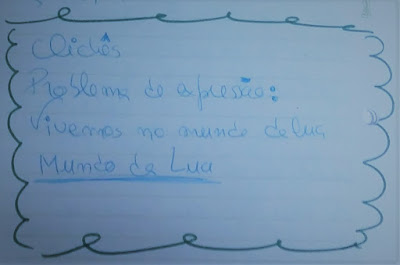 Clichês
Problema de expressão:
Vivemos no mundo da lua
Mundo da Lua